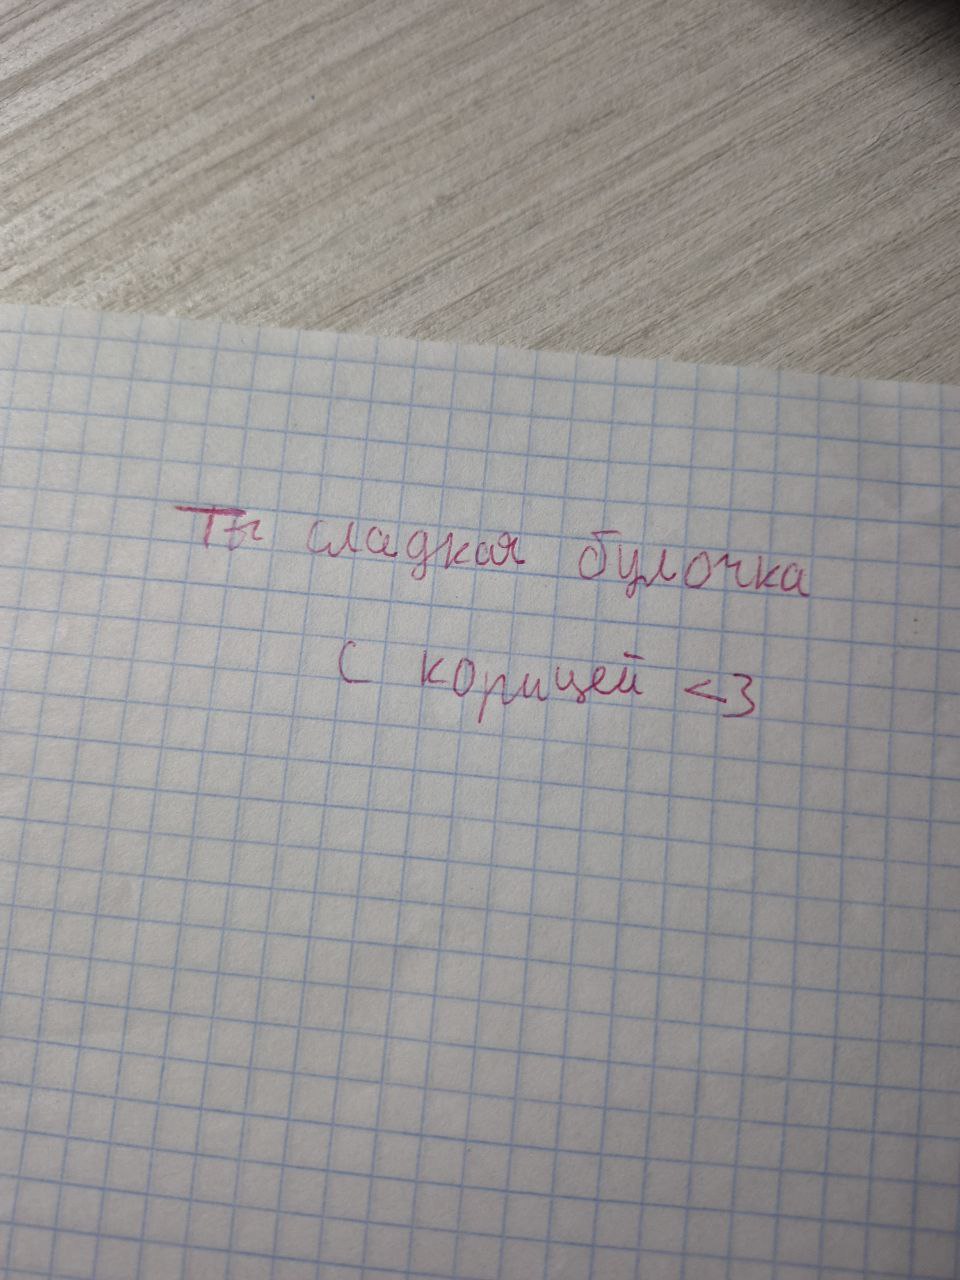 Ты сладкая булочка
с корицей <3